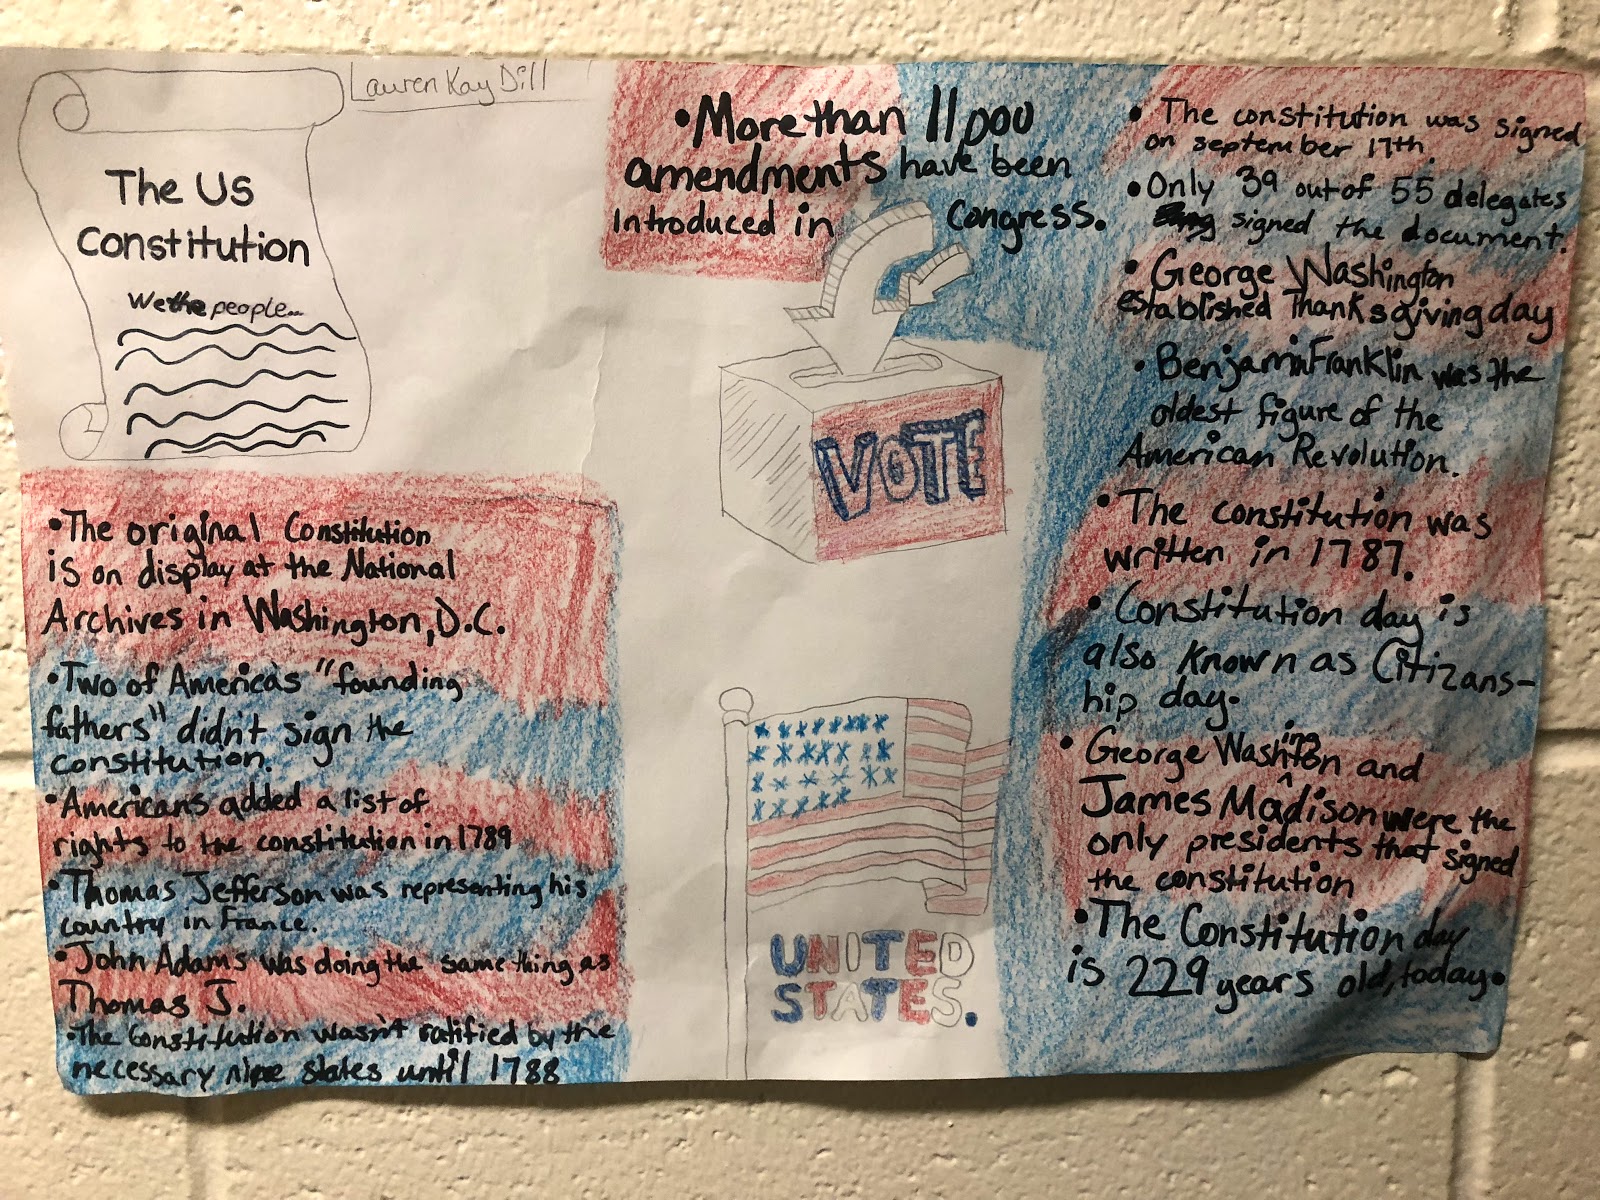 Lauren Kay Dill
The US
Constitution
We the people...
• The original Constitution
is on display at the National
Archives in Washington, D.C.
• Two of America's "founding
fathers" didn't sign the
constitution.
• Americans added a list of
rights to the constitution in 1789
• Thomas Jefferson was representing his
country in France.
• John Adams was doing the same thing as
Thomas J.
• The Constitution wasn't ratified by the
necessary nine states until 1788
• More than 11,000
amendments have been
introduced in Congress.
VOTE
UNITED
STATES.
• The constitution was signed
on september 17th.
• Only 39 out of 55 delegates
signed the document.
• George Washington
established Thanksgiving day
• Benjamin Franklin was the
oldest figure of the
American Revolution.
• The constitution was
written in 1787.
• Constitution day is
also known as Citizans-
hip day.
• George Washington and
James Madison were the
only presidents that signed
the constitution
• The Constitution day
is 229 years old, today.